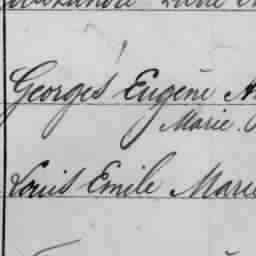 Georges Eugène
Marie
Louis Emile Marie